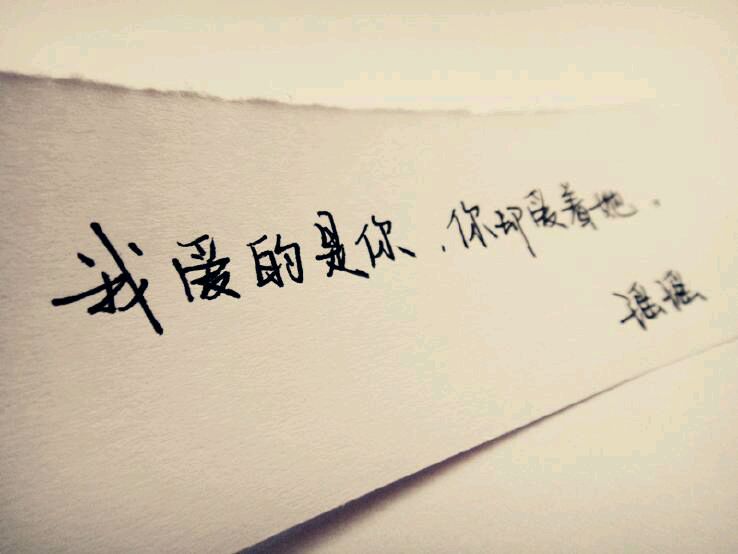 我爱的是你，你却爱着她。
瑶瑶